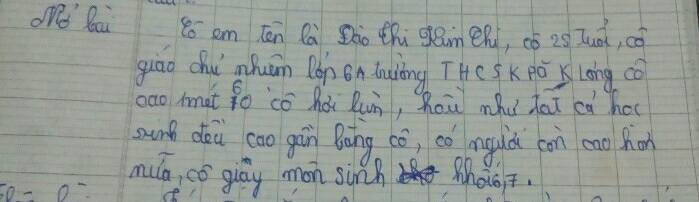 Mở bài Cô em tên là Đào Thị Kim Chi, cô 25 tuổi, cô
giáo chủ nhiệm lớp 6A trường THCS KPă KLơng cô
cao 1 mét 60 cô hơi lùn, hầu như tất cả học
sinh đều cao gần bằng cô, có người còn cao hơn
nữa, cô giảy môn sinh khối 6,7.